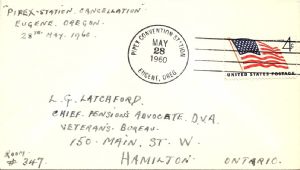 "PIPEX-STATION CANCELLATION"
EUGENE, OREGON.
28TH. MAY. 1960.
PIPEX CONVENTION STATION
MAY
28
1960
EUGENE, OREG
4¢
UNITED STATES POSTAGE
L. G. LATCHFORD.
CHIEF. PENSIONS ADVOCATE. D.V.A.
VETERAN'S. BUREAU.
150. MAIN. ST. W.
HAMILTON ONTARIO.
ROOM
# 347.